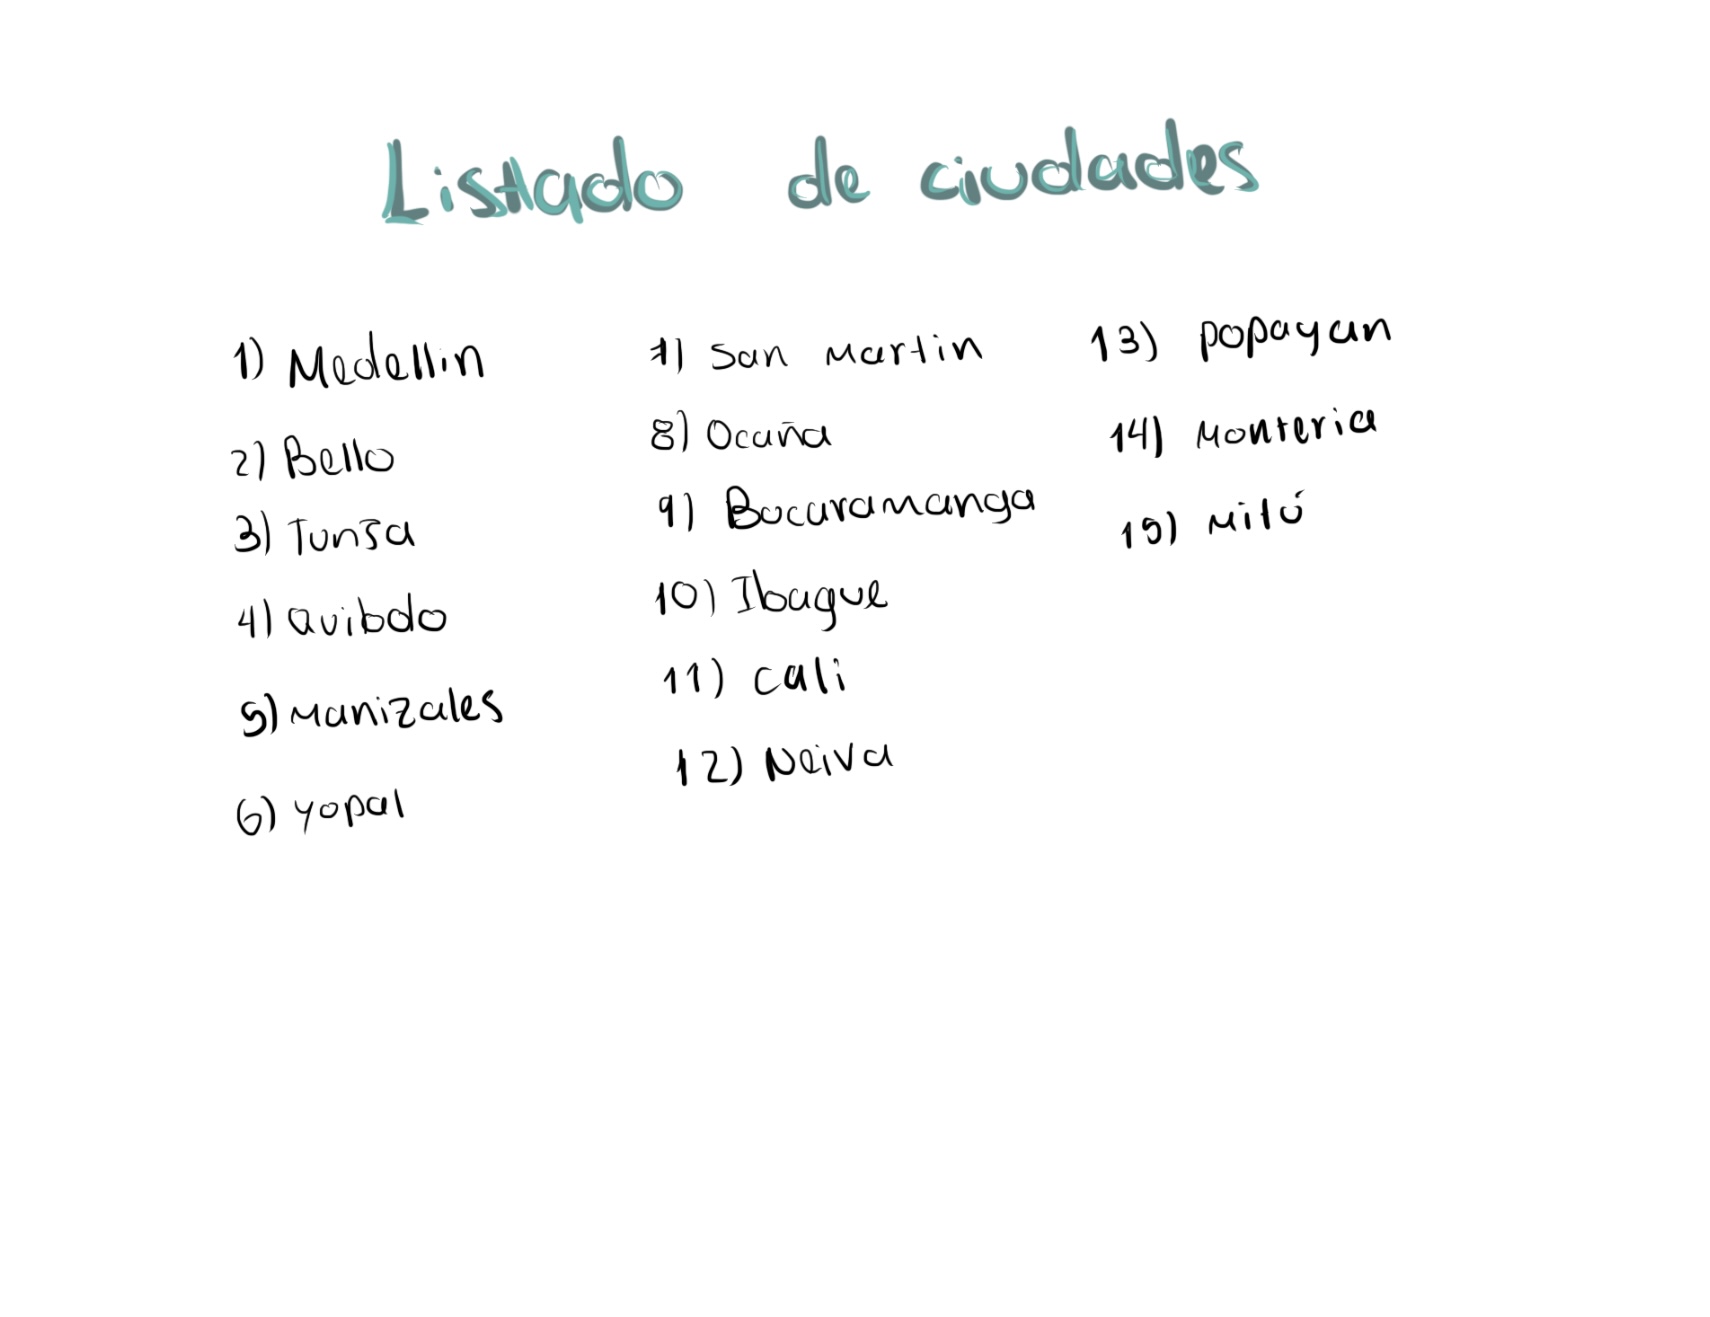 Listado de ciudades
1) Medellin
2) Bello
3) Tunja
4) Quibdo
5) Manizales
6) yopal
7) San Martin
8) Ocaña
9) Bucaramanga
10) Ibague
11) cali
12) Neiva
13) popayan
14) Monteria
15) Mitú